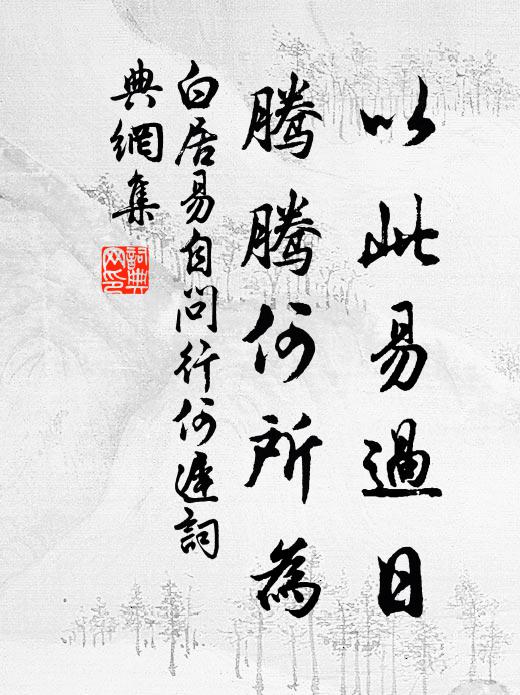 以此易過日
騰騰何所為
白居易自問行何遲詞
典網集
詞典
网印